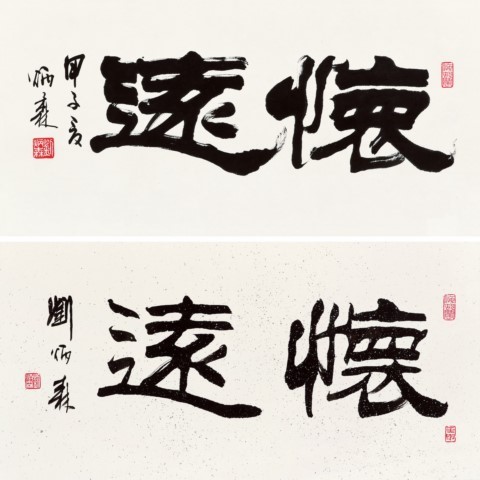 懷遠
甲子夏
炳森
懷遠
劉炳森